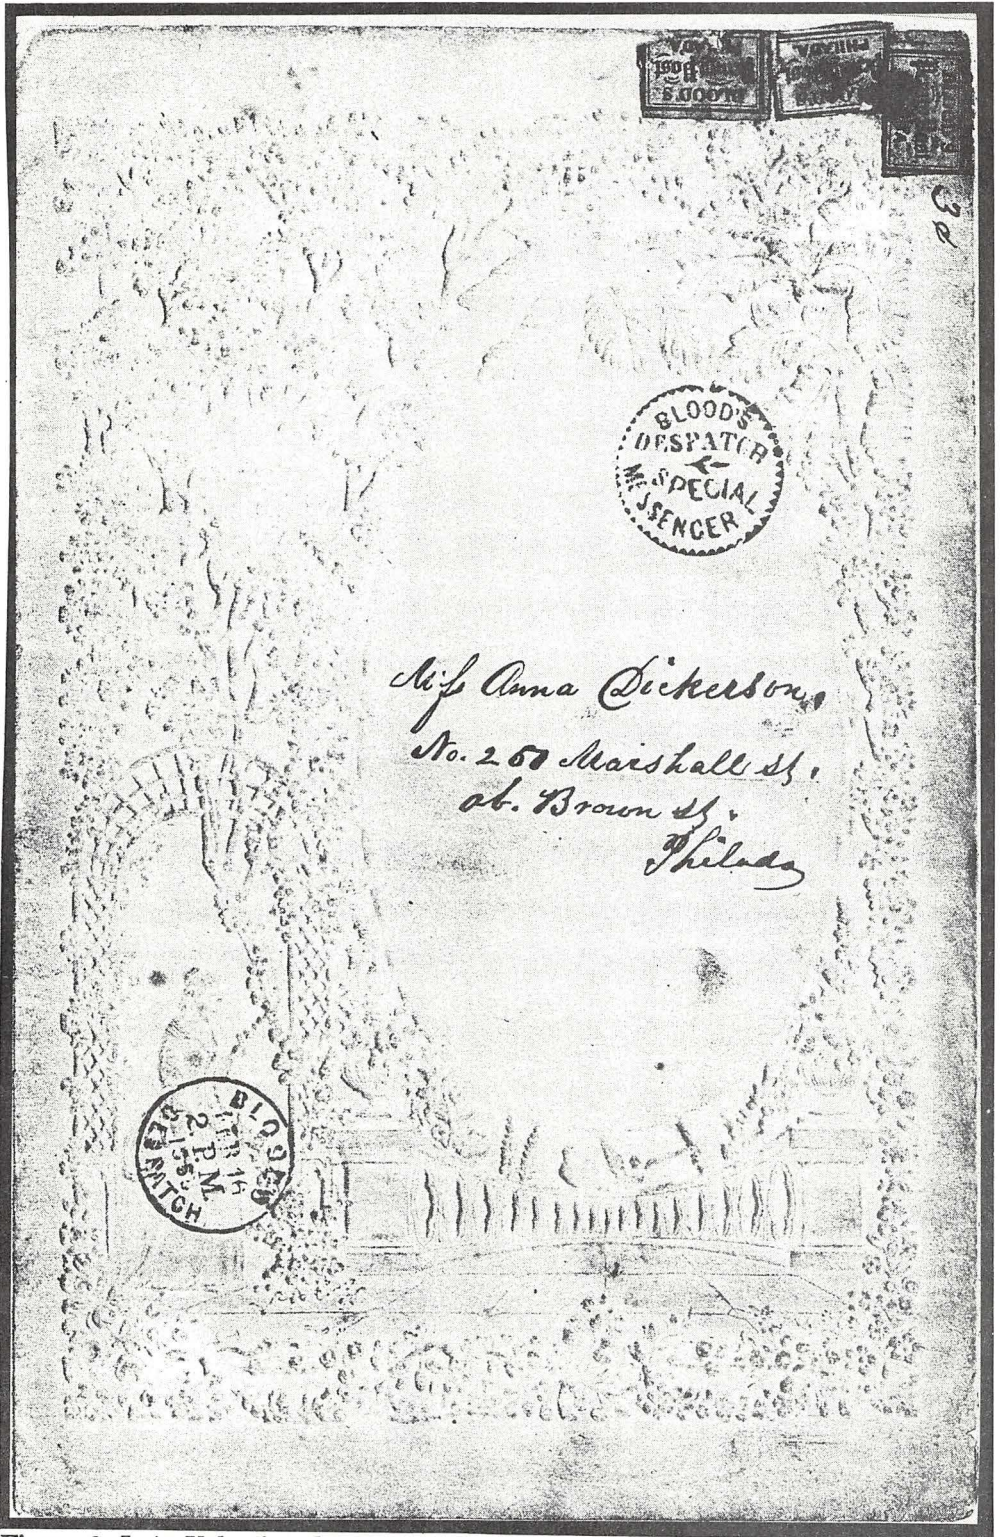 BLOOD'S
Penny Post
PHILADA
3d
BLOOD'S
DESPATCH
SPECIAL
MESSENGER
Miss Anna Dickerson,
No. 260 Marshall St,
ab. Brown St.
Philada
BLOOD'S
FEB 16
2 P.M.
DESPATCH